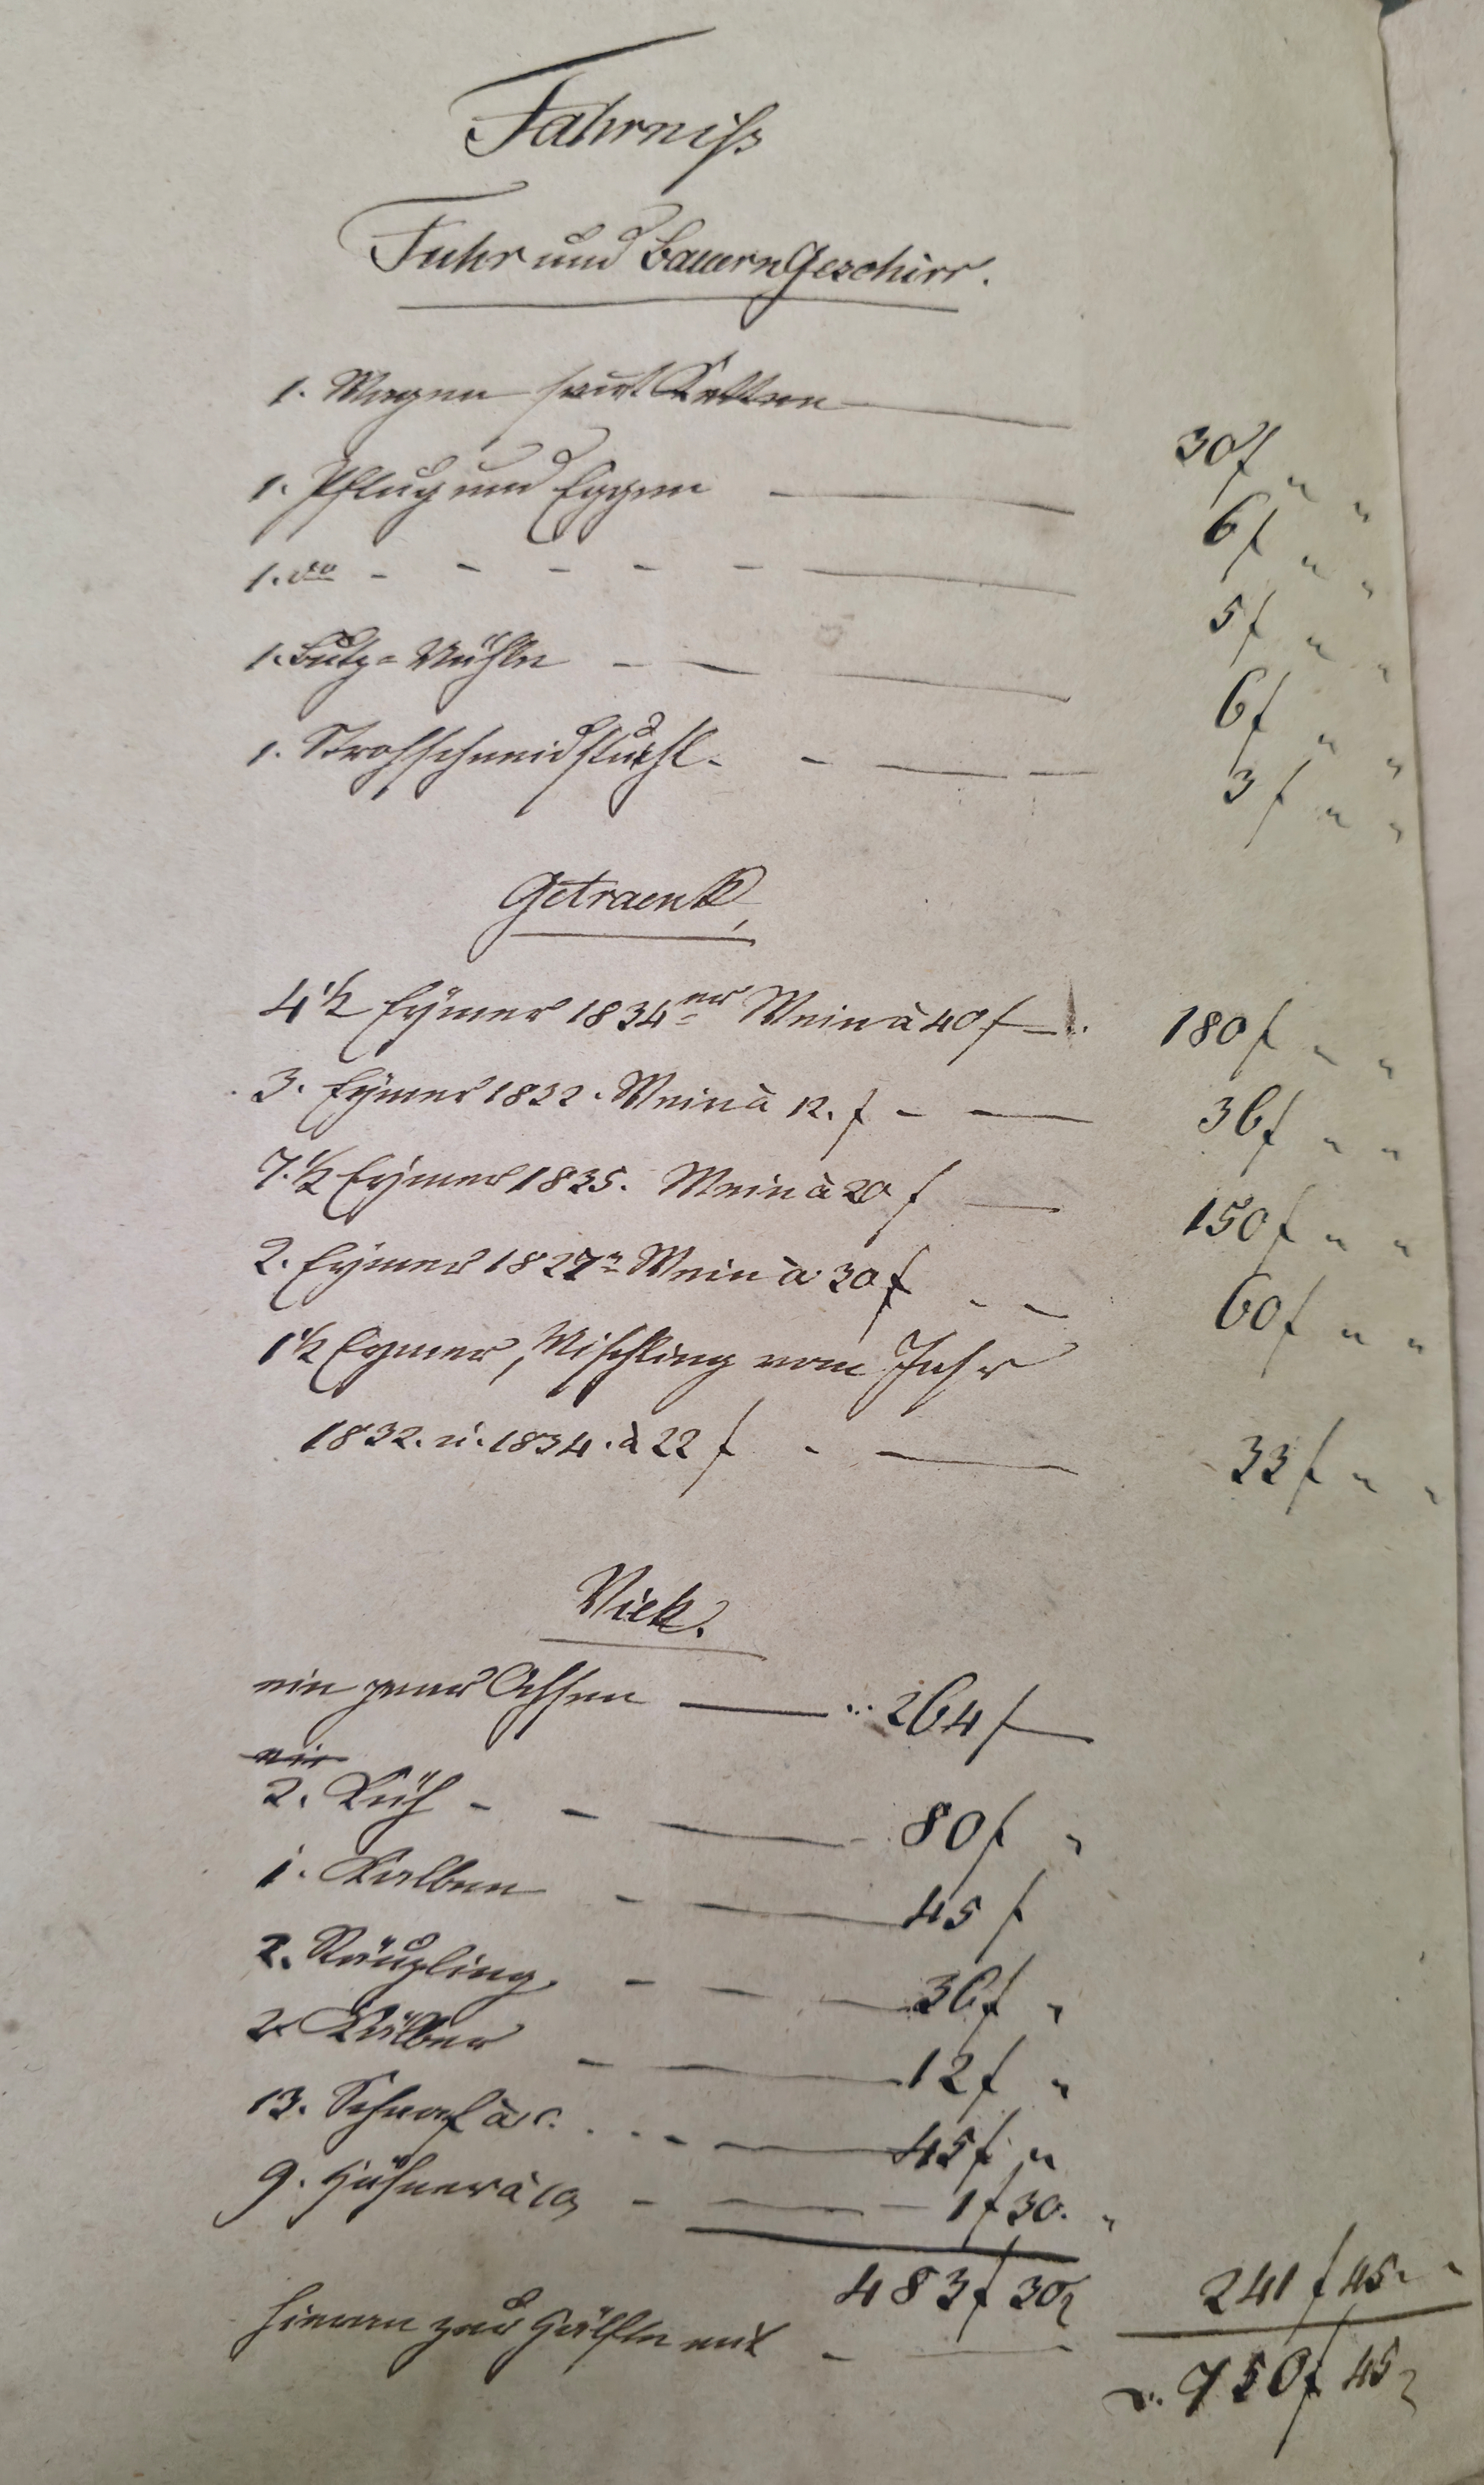 Fahrniß
Fuhr und Bauern Geschirr.
1. Wagen samt Ketten 30 f " "
1. Pflug und Eggen 6 f " "
1. dto - - - - - 5 f " "
1. Butz=Mühle - - 6 f " "
1. Strohschneidstuhl - - 3 f " "
Getraenk,
4 1/2 Eÿmer 1834er Wein à 40 f 180 f " "
3. Eÿmer 1832. Wein à 12. f - 36 f " "
7. 1/2 Eÿmer 1835. Wein à 20 f 150 f " "
2. Eÿmer 1827r Wein à 30 f - - 60 f " "
1 1/2 Eymer, Mischling vom Jahr
1832. u. 1834. à 22 f - 33 f " "
Vieh.
ein paar Ochsen 264 f
ein
2. Küh - - 80 f "
1. Kalben - 45 f
2. Räupling - - 36 f "
2 Kälber - 12 f "
13. Schaaf à 45 f "
9. Hühner à 10 - 1 f 30. "
483 f 30
hievon zur Hälfte mit - 241 f 45 "
750 f 45